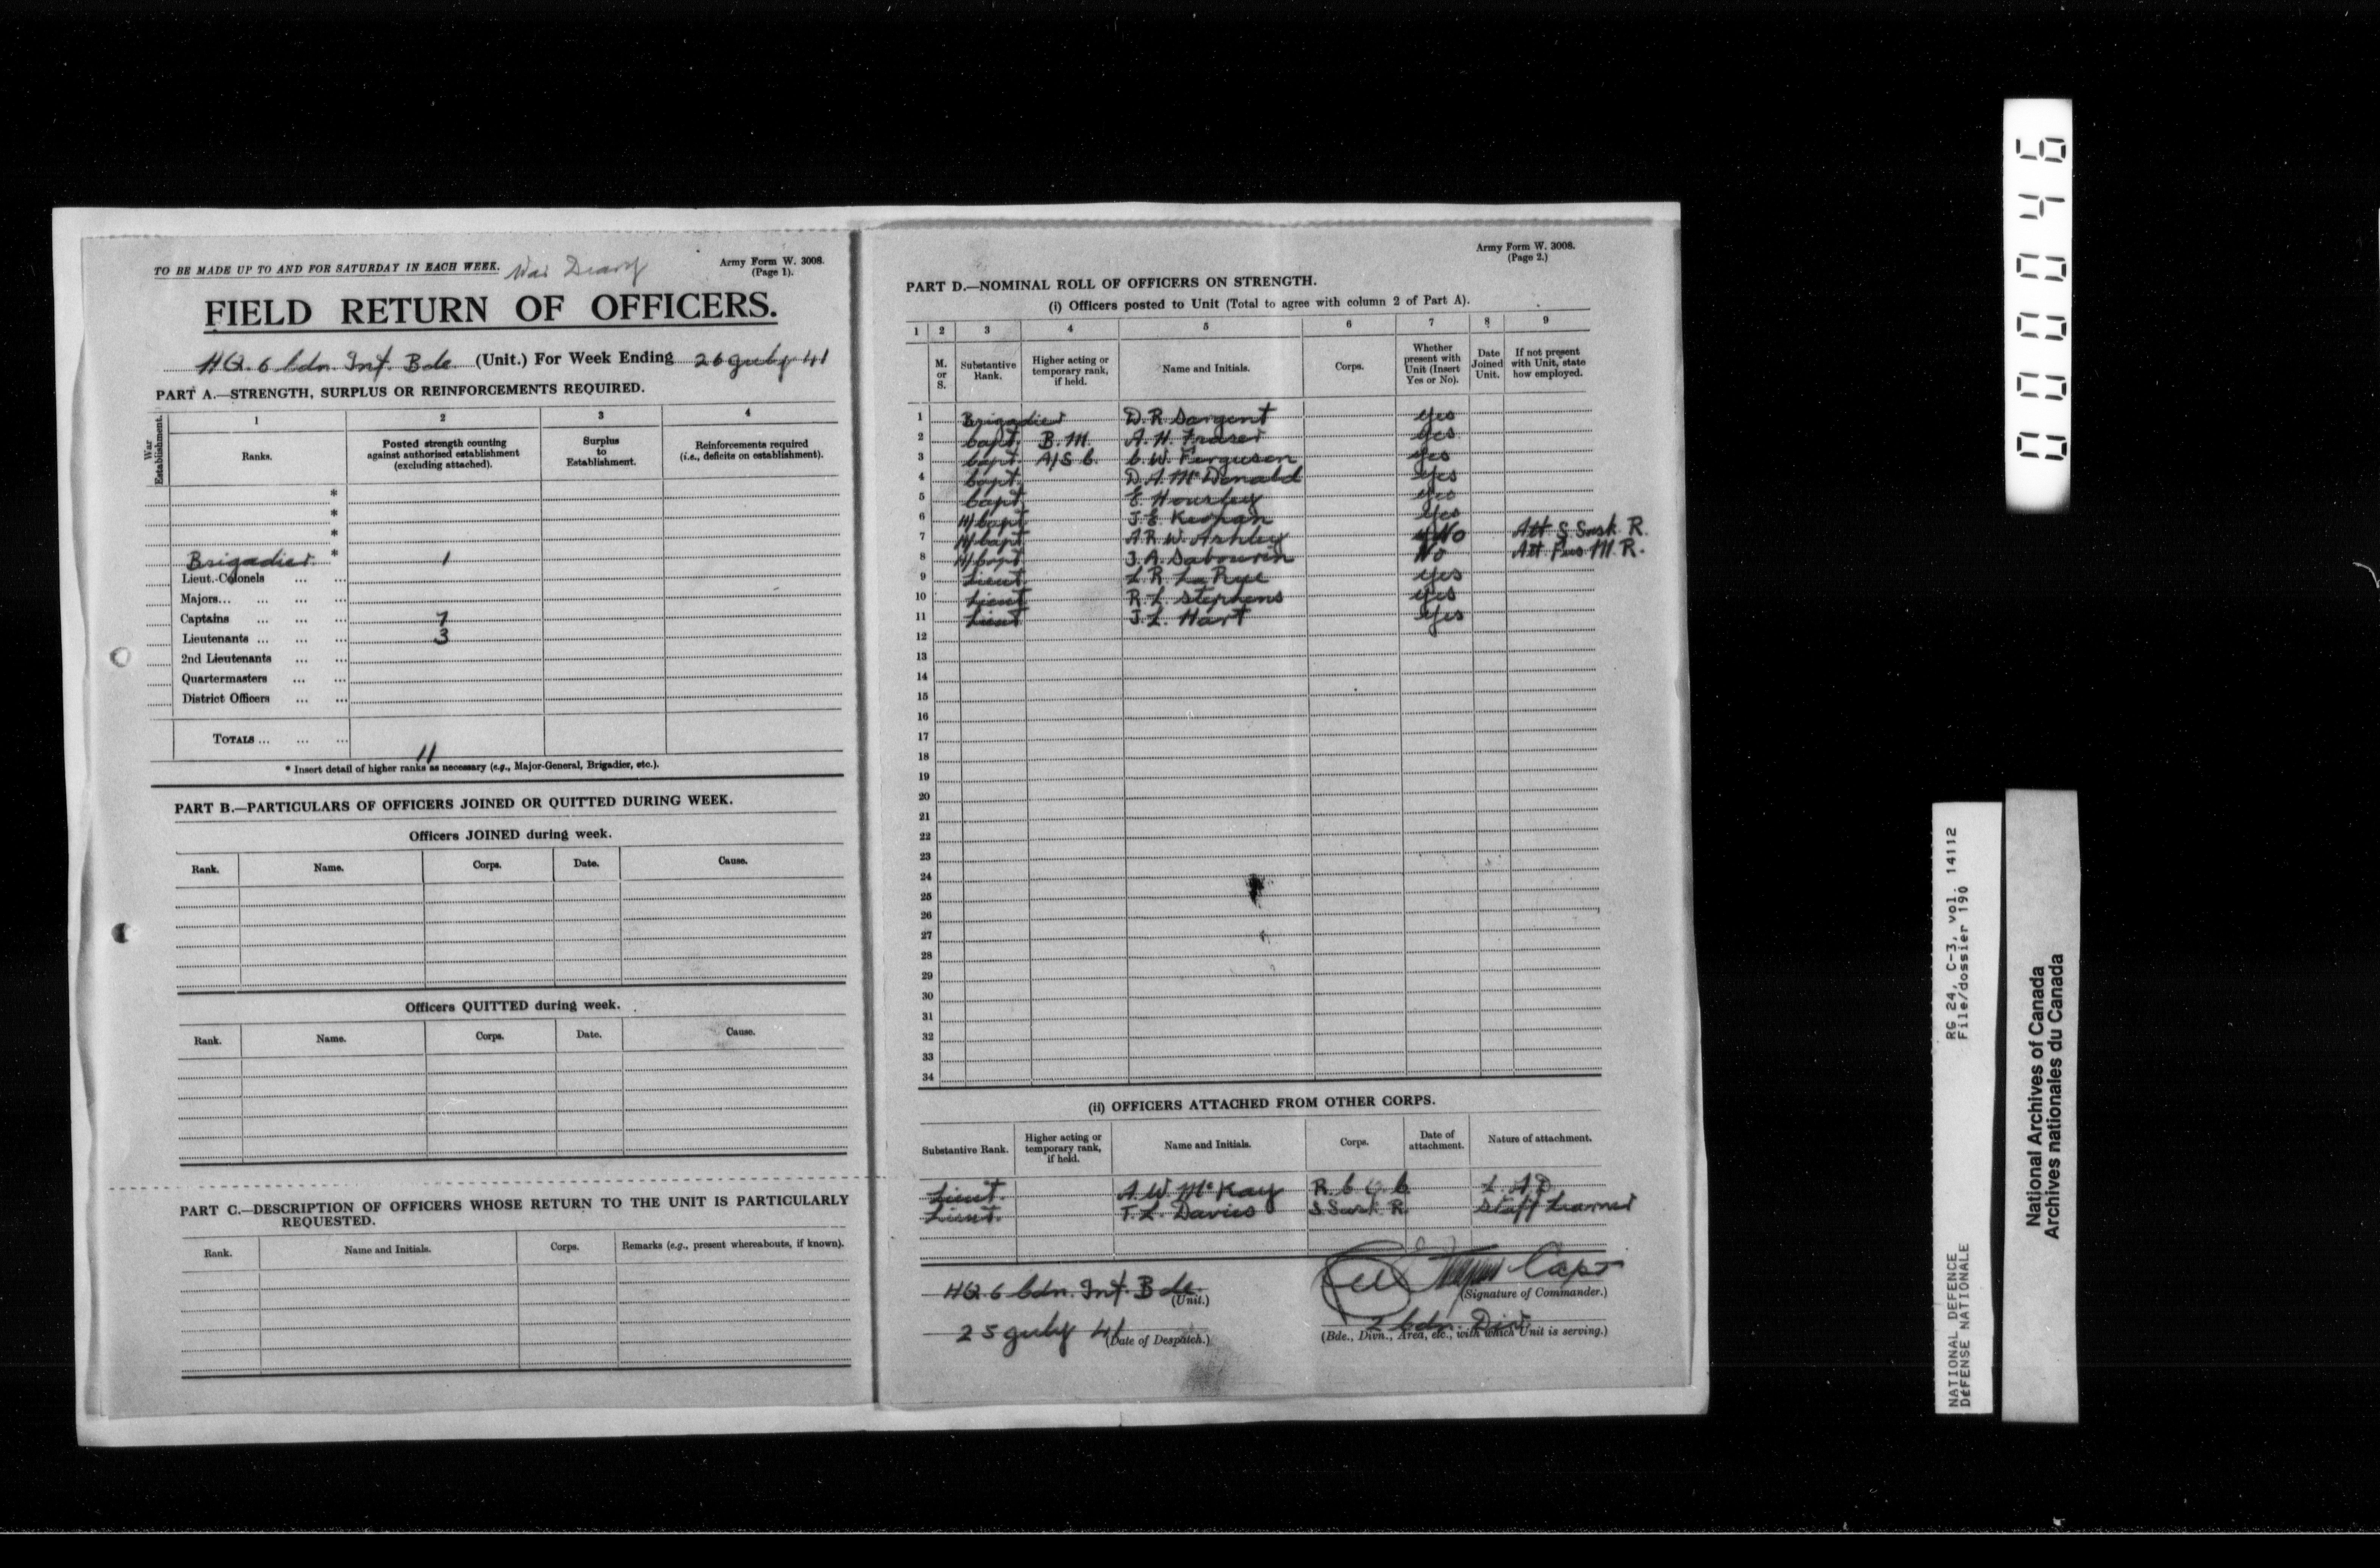 TO BE MADE UP TO AND FOR SATURDAY IN EACH WEEK. War Diary
Army Form W. 3008.
(Page 1).
FIELD RETURN OF OFFICERS.
HQ. 6 Cdn. Inf. Bde (Unit.) For Week Ending 26 July 41
PART A.—STRENGTH, SURPLUS OR REINFORCEMENTS REQUIRED.
War Establishment.
1 2 3 4
Ranks. Posted strength counting against authorised establishment (excluding attached). Surplus to Establishment. Reinforcements required (i.e., deficits on establishment).
*
*
*
Brigadier * 1
Lieut.-Colonels ... ...
Majors... ... ... ...
Captains ... ... ... 7
Lieutenants ... ... ... 3
2nd Lieutenants ... ...
Quartermasters ... ...
District Officers ... ...
TOTALS ... ... ... 11
* Insert detail of higher ranks as necessary (e.g., Major-General, Brigadier, etc.).
PART B.—PARTICULARS OF OFFICERS JOINED OR QUITTED DURING WEEK.
Officers JOINED during week.
Rank. Name. Corps. Date. Cause.
Officers QUITTED during week.
Rank. Name. Corps. Date. Cause.
PART C.—DESCRIPTION OF OFFICERS WHOSE RETURN TO THE UNIT IS PARTICULARLY
REQUESTED.
Rank. Name and Initials. Corps. Remarks (e.g., present whereabouts, if known).
Army Form W. 3008.
(Page 2.)
PART D.—NOMINAL ROLL OF OFFICERS ON STRENGTH.
(i) Officers posted to Unit (Total to agree with column 2 of Part A).
1 2 3 4 5 6 7 8 9
M. or S. Substantive Rank. Higher acting or temporary rank, if held. Name and Initials. Corps. Whether present with Unit (Insert Yes or No). Date Joined Unit. If not present with Unit, state how employed.
1 Brigadier D. R. Sargent Yes
2 Capt. B.M. A. H. Fraser Yes
3 Capt. A/S C. C. W. Ferguson Yes
4 Capt. D. A. McDonald Yes
5 Capt. E. Yes
6 H/Capt J. E. Yes
7 H/Capt A. R. W. Ashley No Att S Sask R.
8 H/Capt J. A. Sabourin No Att Fus M. R.
9 Lieut L. R. La Rue Yes
10 Lieut R. L. Stephens Yes
11 Lieut J. L. Hart Yes
12
13
14
15
16
17
18
19
20
21
22
23
24
25
26
27
28
29
30
31
32
33
34
(ii) OFFICERS ATTACHED FROM OTHER CORPS.
Substantive Rank. Higher acting or temporary rank, if held. Name and Initials. Corps. Date of attachment. Nature of attachment.
Lieut. A. W. McKay R.C.O.C L.A.D
Lieut. T. L. Davies S Sask R. Staff Learner
HQ. 6 Cdn. Inf. Bde. (Unit.)
Capt (Signature of Commander.)
25 July 41 (Date of Despatch.)
2 Cdn. Div. (Bde., Divn., Area, etc., with which Unit is serving.)
000046
RG 24, C-3, vol. 14112
File/dossier 190
NATIONAL DEFENCE
DÉFENSE NATIONALE
National Archives of Canada
Archives nationales du Canada